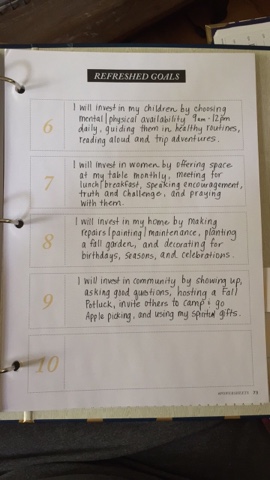 REFRESHED GOALS
6
I will invest in my children by choosing
mental/physical availability 9am-12pm
daily, guiding them in healthy routines,
reading aloud and trip adventures.
7
I will invest in women by offering space
at my table monthly, meeting for
lunch/breakfast, speaking encouragement,
truth and challenge, and praying
with them.
8
I will invest in my home by making
repairs/painting/maintenance, planting
a fall garden, and decorating for
birthdays, seasons, and celebrations.
9
I will invest in community by showing up,
asking good questions, hosting a Fall
Potluck, invite others to camp & go
Apple picking, and using my spiritual gifts.
10
71